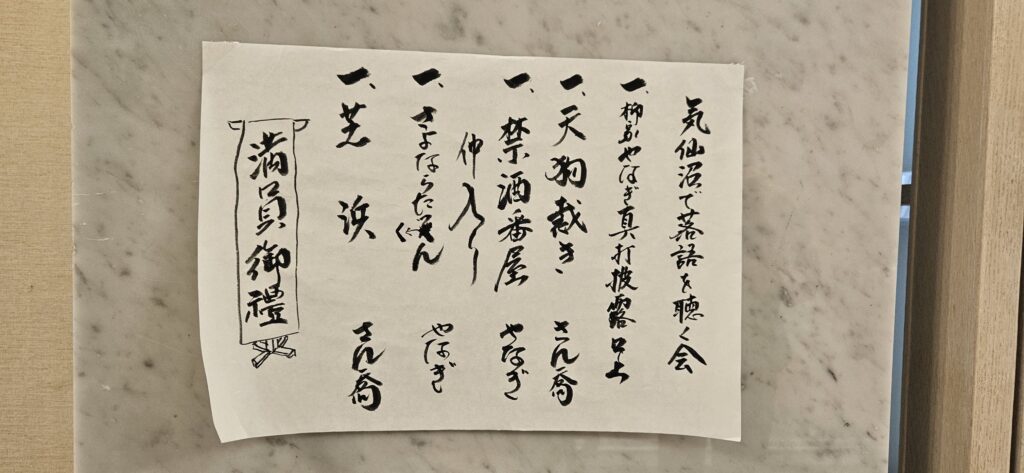 気仙沼で落語を聴く会
一、柳家やなぎ真打披露口上
一、天狗裁き さん喬
一、禁酒番屋 やなぎ
仲入り
一、さよならたけくん やなぎ
一、芝浜 さん喬
満員御禮